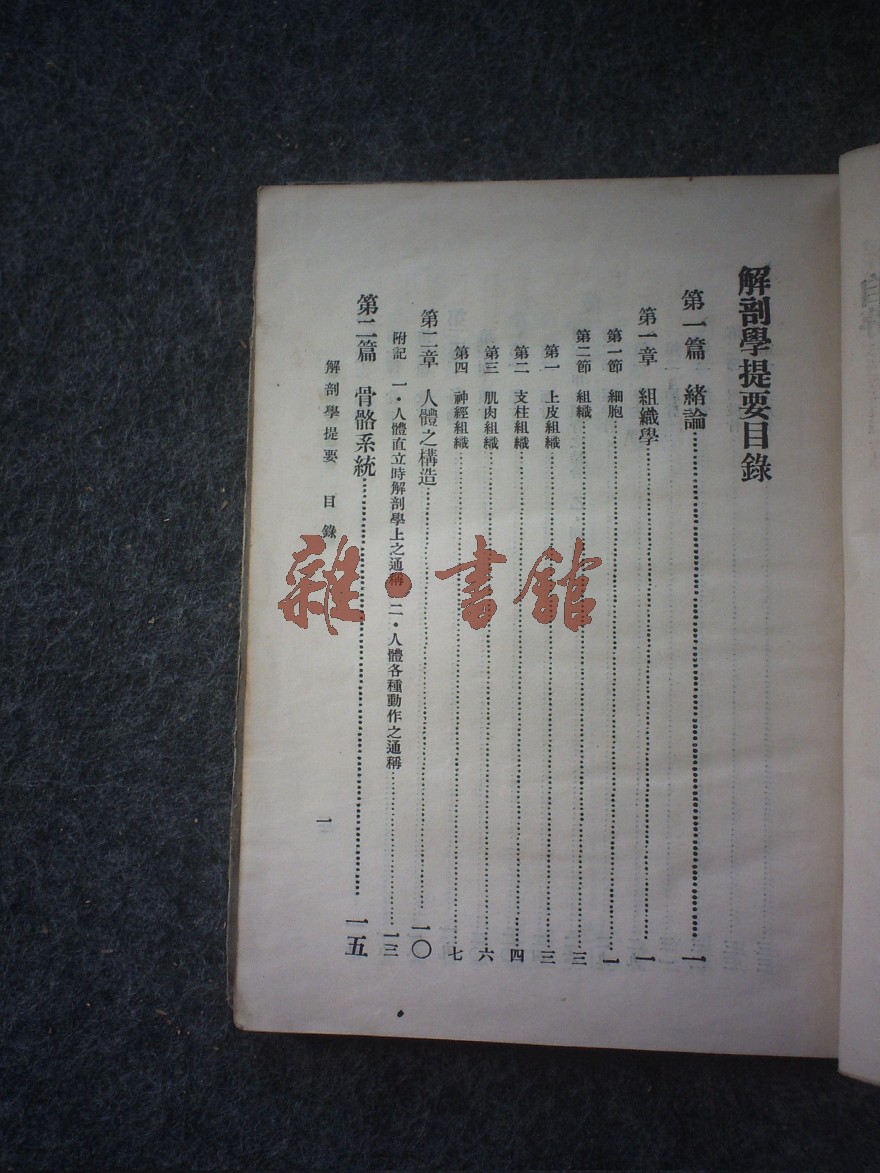 解剖學提要目錄
第一篇 緒論……一
第一章 組織學……一
第一節 細胞……一
第二節 組織……三
第一 上皮組織……三
第二 支柱組織……四
第三 肌肉組織……六
第四 神經組織……七
第二章 人體之構造……一〇
附記 一·人體直立時解剖學上之通稱 二·人體各種動作之通稱……一三
第二篇 骨骼系統……一五
解剖學提要 目錄 一
雜·書館